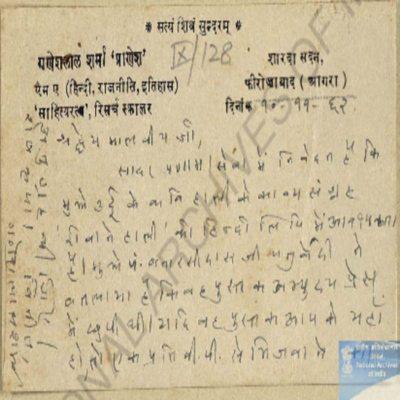 * सत्यं शिवं सुन्दरम् *
गणेशलाल शर्मा 'प्राणेश'
एम ए (हिन्दी, राजनीति, इतिहास)
'साहित्यरत्न', रिसर्च स्कालर
IX/128
शारदा सदन,
फीरोजाबाद (आगरा)
दिनांक १०-११-६२
श्रद्धेय मालवीय जी,
सादर प्रणाम। सेवा में निवेदन है कि
मुझे उर्दू के कवि हाली के काव्य संग्रह
'दीवाने हाली' की हिन्दी लिपि में आवश्यकता
है। मुझे पं. बनारसीदास जी चतुर्वेदी ने
बतलाया है कि वह पुस्तक अभ्युदय प्रेस
में छपी थी। यदि वह पुस्तक आप के यहां
हो तो एक प्रति वी.पी. से भिजवाने की
राष्ट्रीय अभिलेखागार
National Archives